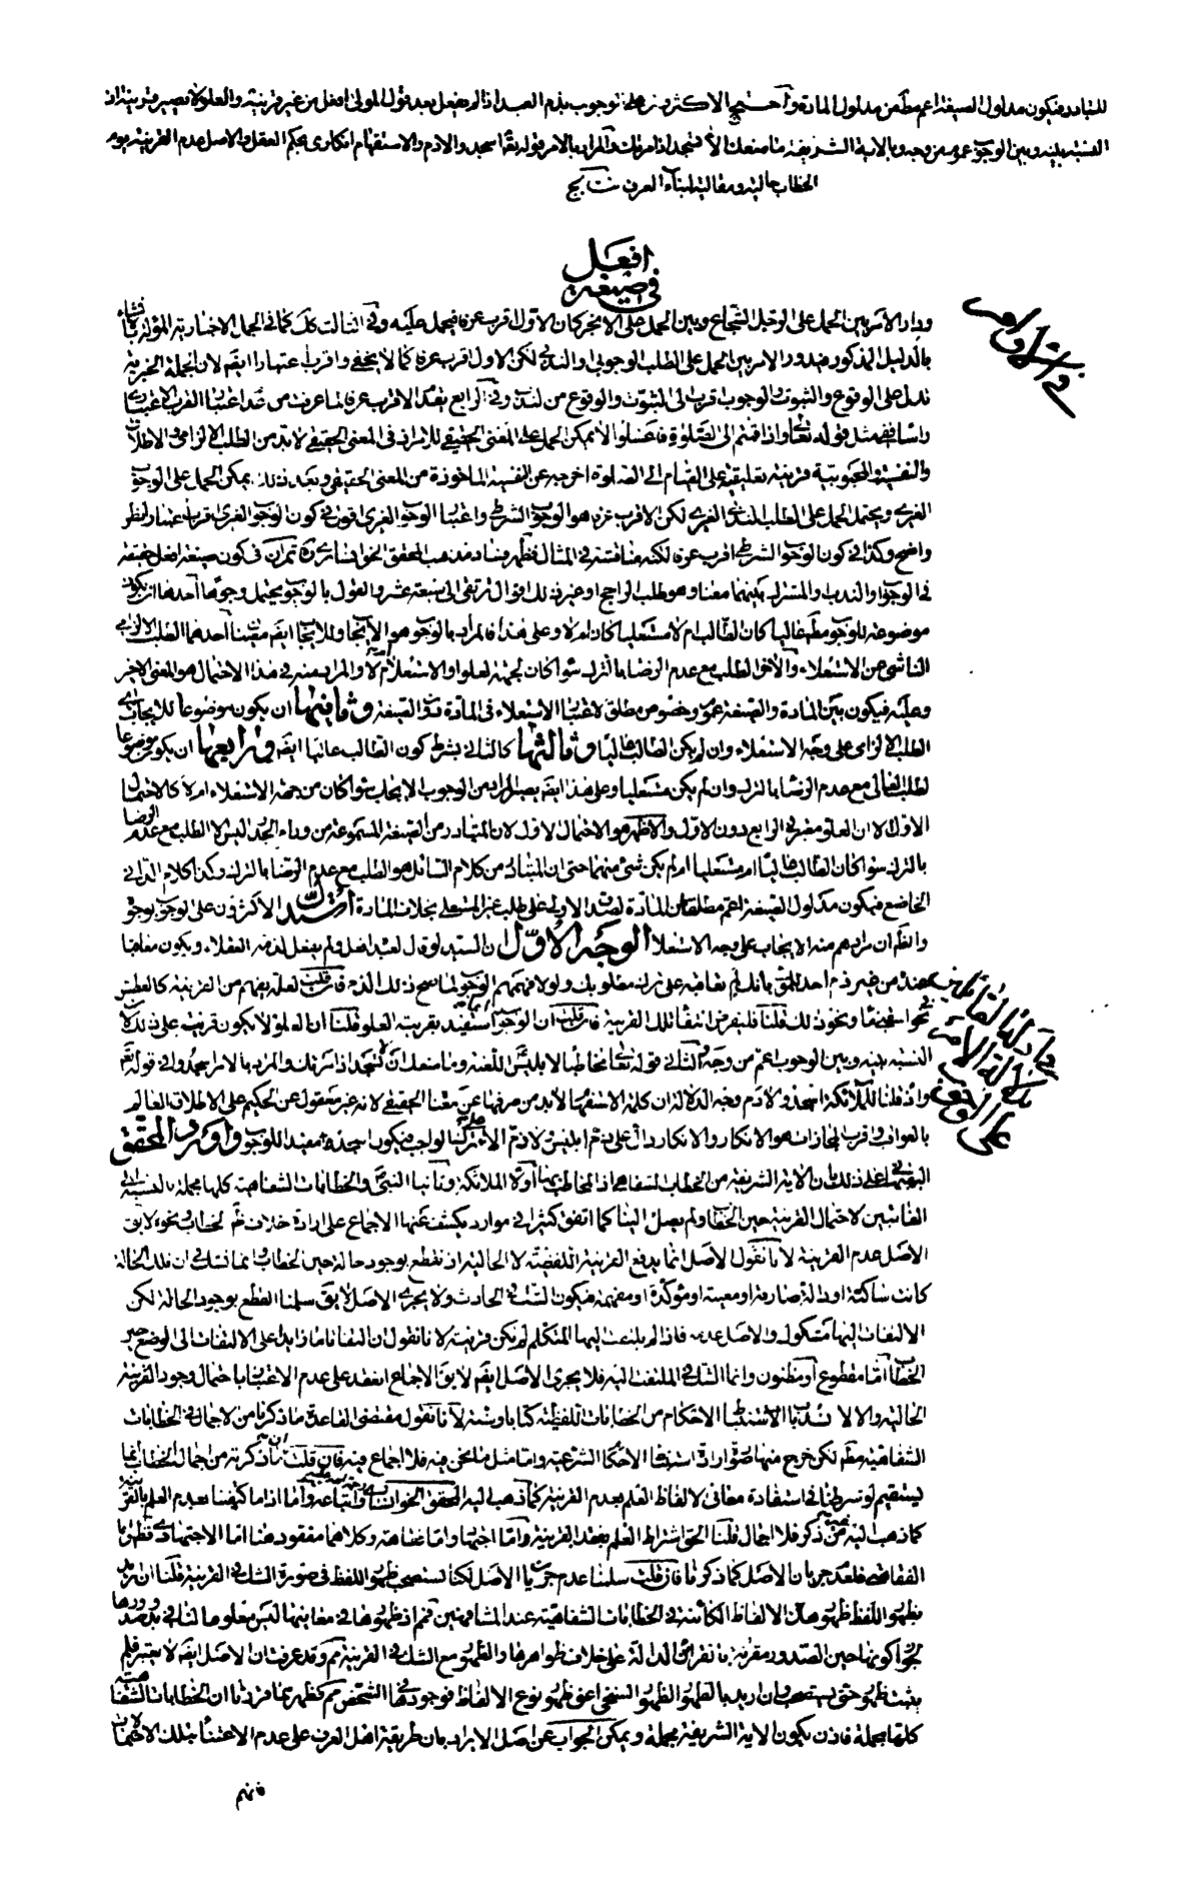 للتبادر فيكون مدلول الصيغة اعم مطلقا من مدلول المادة واحتج الاكثرون على الوجوب بذم العبد اذا لم يفعل بعد قول المولى افعل من غير قرينة والعلو لا يصير قرينة اذ
النسبة بينه وبين الوجوب عموم من وجه وبالاية الشريفة ما منعك الا تسجد اذ امرتك والمراد بالامر قوله تعالى اسجدوا لادم والاستفهام انكارى بحكم العقل والاصل عدم القرينة يوم
الخطاب حالية ومقالية لبناء العرف نتايج
افعل
في صيغة
ودار الامر بين الحمل على الرجل الشجاع وبين الحمل على الابخر كان الاول اقرب عرفا فيحمل عليه وفي الثالث كك كما فى الجمل الاخبارية المؤلة بالانشاء
بالدليل المذكور فيدور الامر بين الحمل على الطلب الوجوبى والندبى لكن الاول اقرب عرفا كما لا يخفى واقرب اعتبارا ايضا لان الجملة الخبرية
تدل على الوقوع والثبوت والوجوب اقرب الى الثبوت والوقوع من الندب وفى الرابع يقدم الاقرب عرفا لما عرفت من تقدم اعتبار القرب الاعتبارى
واما فى مثل قوله تعالى واذا قمتم الى الصلوة فاغسلوا لا يمكن الحمل على المعنى الحقيقى للامر اذ فى المعنى الحقيقى لابد من الطلب الالزامى والاطلاق
والنفسية والمحبوبية وقرينة تعليقه على القيام الى الصلوة اخرجه عن النفسية الماخوذة من المعنى الحقيقى وبعد ذلك يمكن الحمل على الوجوب
الغيرى ويحتمل الحمل على الطلب الندبى الغيرى لكن الاقرب عرفا هو الوجوب الشرطى واعتبار الوجوب الغيرى اقوى فى كون الوجوب الغيرى اقرب اعتبارا نظر
واضح وكذا فى كون الوجوب الشرطى اقرب عرفا لكنه مناقشة فى المثال فظهر فساد مذهب المحقق الخوانسارى ره ثم ان فى كون صيغة افعل حقيقة
فى الوجوب او الندب او المشترك بينهما معنا وهو طلب الراجح او غير ذلك اقوال ترتقى الى سبعة عشر والقول بالوجوب يحتمل وجوها احدها ان يكون
موضوعة للوجوب مطلقا عاليا كان الطالب ام لا مستعليا كان ام لا وعلى هذا فالمراد بالوجوب هو الايجاب وللايجاب ايضا معنيان احدهما الطلب الالزامى
الناشى عن الاستعلاء والاخر الطلب مع عدم الرضا بالترك سواء كان بجهة العلو او الاستعلاء ام لا والمراد منه فى هذا الاحتمال هو المعنى الاخير
وعليه فيكون بين المادة والصيغة عموم وخصوص مطلق لاعتبار الاستعلاء فى المادة دون الصيغة وثانيها ان يكون موضوعا للايجاب اى
الطلب الالزامى على وجه الاستعلاء وان لم يكن الطالب عاليا وثالثها كالثانى بشرط كون الطالب عاليا ايضا ورابعها ان يكون موضوعا
لطلب العالى مع عدم الرضا بالترك وان لم يكن مستعليا وعلى هذا ايضا يصير المراد من الوجوب الايجاب سواء كان من جهة الاستعلاء ام لا كالاحتمال
الاول الا ان العلو معتبر فى الرابع دون الاول والاظهر هو الاحتمال الاول لان المتبادر من الصيغة المسموعة من وراء الجدار ليس الا الطلب مع عدم الرضا
بالترك سواء كان الطالب عاليا ام مستعليا ام لم يكن شئ منهما حتى ان المتبادر من كلام السائل هو الطلب مع عدم الرضا بالترك وكذا كلام الدانى
الخاضع فيكون مدلول الصيغة اعم مطلقا من المادة لصدق الاولى على طلب غير المستعلى بخلاف المادة استدل الاكثرون على الوجوب بوجوه
والظاهر ان مرادهم منه الايجاب على وجه الاستعلاء الوجه الاول ان السيد لو قال لعبده افعل ولم يفعل لذمه العقلاء ويكون معاقبا
عنده من غير ذم احد للمولى بانك لم تعاقبه على ترك مطلوبك ولولا فهمهم الوجوب لما صح ذلك الذم فان قلت لعله يفهم من القرينة كالعطش
فى نحو اسقنى ماء ونحو ذلك قلنا فليفرض انتفاء تلك القرينة فان قلت ان الوجوب استفيد بقرينة العلو قلنا ان العلو لا يكون قرينة على ذلك لان
النسبة بينه وبين الوجوب اعم من وجه الثانى قوله تعالى مخاطبا لابليس اللعنة وما منعك ان لا تسجد اذ امرتك والمراد بالامر اسجدوا فى قوله تعالى
واذ قلنا للملائكة اسجدوا لادم وجه الدلالة ان كلمة الاستفهام لابد من صرفها عن معناها الحقيقى لانه غير معقول عن الحكيم على الاطلاق العالم
بالعواقب واقرب المجازات هو الانكار والانكار دال على ذم ابليس لاذم الا على ترك الواجب فيكون اسجدوا مفيدا للوجوب واورد المحقق
البهبهانى على ذلك بان الاية الشريفة من الخطاب الشفاهى اذ المخاطب بها اولا الملائكة وثانيا النبى والخطابات الشفاهية كلها مجملة بالنسبة الى
الغائبين لاحتمال القرينة حين الخطاب ولم يصل الينا كما اتفق كثيرا فى موارد يكشف عنها الاجماع على ارادة خلاف ظاهر الخطاب ونحوه لا يقال
الاصل عدم القرينة لانا نقول الاصل انما يدفع القرينة اللفظية لا الحالية اذ نقطع بوجود حالة حين الخطاب وانما نشك فى ان تلك الحالة
كانت ساكتة او دالة صارفة او معينة او مؤكدة او مفهمة فيكون الشك فى الحادث ولا يجرى الاصل لا يقال سلمنا القطع بوجود الحالة لكن
الالتفات اليها مشكوك والاصل عدمه فاذا لم يلتفت اليها المتكلم لم يكن قرينة لانا نقول ان التفاتا ما زايدا على الالتفات الى الوضع حين
الخطاب اما مقطوع او مظنون وانما الشك فى الملتفت اليه فلا يجرى الاصل ايضا لا يقال الاجماع انعقد على عدم الاعتناء باحتمال وجود القرينة
الحالية والا لانسد باب الاستنباط الاحكام من الخطابات اللفظية كتابا وسنة لانا نقول مقتضى القاعدة ما ذكرنا من الاجمال فى الخطابات
الشفاهية مطلقا لكن خرج منها صورة ارادة استنباط الاحكام الشرعية واما مثل ما نحن فيه فلا اجماع فيه فان قلت ان ما ذكرته من اجمال الخطاب انما
يستقيم لو شرطنا فى استفادة معانى الالفاظ العلم بعدم القرينة كما ذهب اليه المحقق الخوانسارى واتباعه واما اذا ما كتفينا بعدم العلم بالقرينة
كما ذهب اليه من ذكر فلا اجمال قلنا الحق اشتراط العلم بفقد القرينة واما اجتهادا واما فقاهة وكلاهما مفقود هنا اما الاجتهادى فظاهر واما
الفقاهى فلعدم جريان الاصل كما ذكرنا فان قلت سلمنا عدم جريان الاصل لكنا نستصحب ظهور اللفظ فى صورة الشك فى القرينة قلنا ان اريد
بظهور اللفظ ظهور هذه الالفاظ الكائنة فى الخطابات الشفاهية عند المشافهين فمم اذ ظهورها فى معانيها ليس معلوما لنا فى بدو صدورها
لجواز كونها حين الصدور مقرونة بالقرائن الدالة على خلاف ظواهرها والظهور مع الشك فى القرينة مم وقد عرفت ان الاصل ايضا لا يعتبر فلم
يثبت ظهور حتى يستصحب وان اريد بالظهور الظهور السنخى اعنى ظهور نوع الالفاظ فوجوده فى هذا الشخص مم كظهر مما قررنا ان الخطابات الشفاهية
كلها مجملة فاذن يكون الاية الشريفة مجملة ويمكن الجواب عن اصل الايراد بان طريقة اهل العرف على عدم الاعتناء بتلك الاحتمالات
فافهم
فى الاوامر
فى ادلة القائلين
بدلالة الامر
على الوجوب